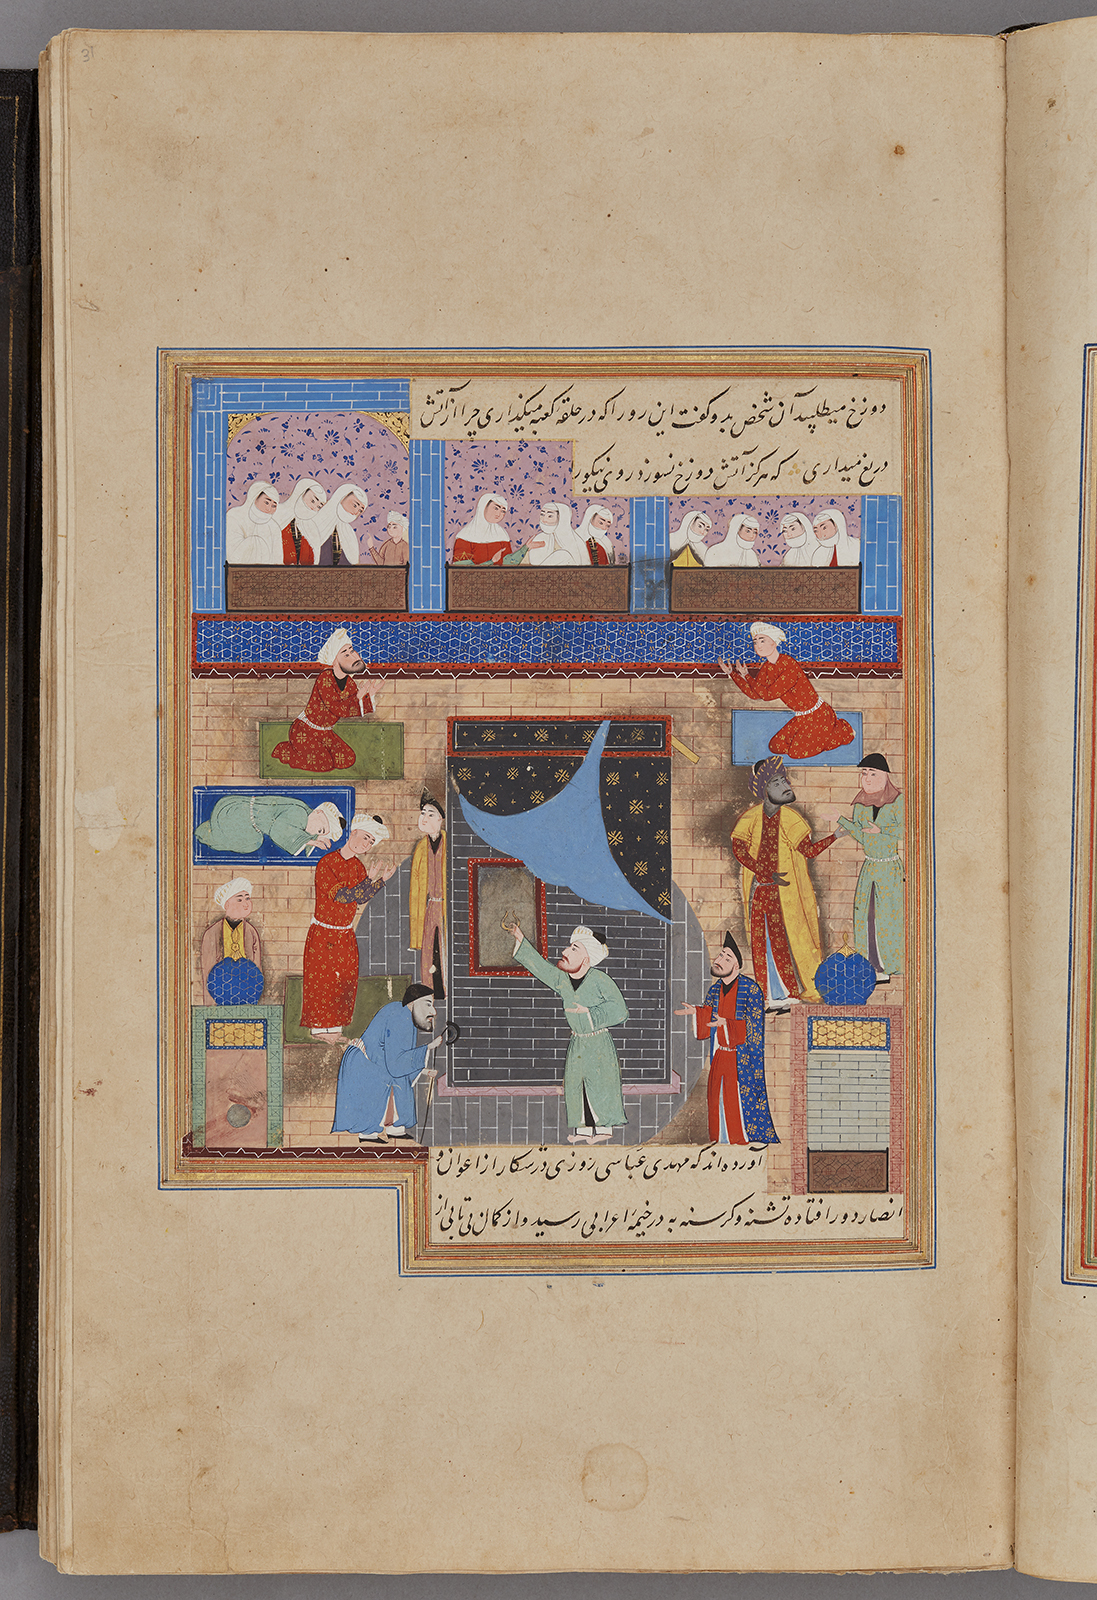 31
دوزخ میطلبید آن شخص بدو گفت این رو را که در حلقه کعبه میگذاری چرا از آتش
دریغ میداری که هرگز آتش دوزخ نسوزد روی نیکور
آورده‌اند که مهدی عباسی روزی در شکار از اعوان و
انصار دور افتاده تشنه و گرسنه به در خیمهٔ اعرابی رسید و از کمال بی تابی از